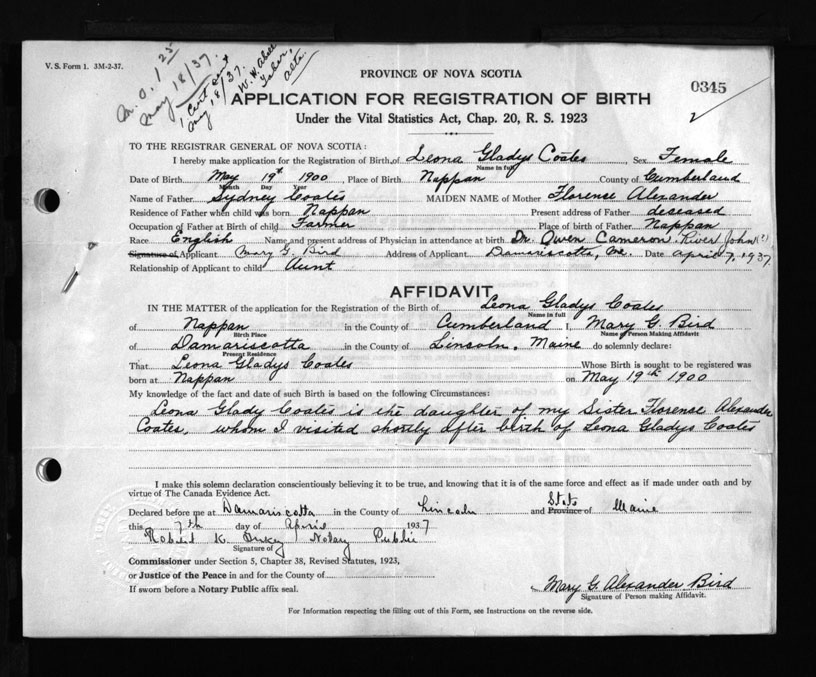 V. S. Form 1. 3M-2-37.
M.O. 1 25
May 18/37.
1 Cert sent
May 18/37.
W. W. Abell
Taber,
Alta.
PROVINCE OF NOVA SCOTIA
0345
APPLICATION FOR REGISTRATION OF BIRTH
Under the Vital Statistics Act, Chap. 20, R. S. 1923
TO THE REGISTRAR GENERAL OF NOVA SCOTIA:
I hereby make application for the Registration of Birth, of Leona Gladys Coates Sex Female
Name in full
Date of Birth May 19th 1900, Place of Birth Nappan County of Cumberland
Month Day Year
Name of Father Sydney Coates MAIDEN NAME of Mother Florense Alexander
Residence of Father when child was born Nappan Present address of Father deseased
Occupation of Father at Birth of child Farmer Place of birth of Father Nappan
Race English Name and present address of Physician in attendance at birth Dr. Owen Cameron River John (?)
Signature of Applicant Mary G. Bird Address of Applicant Damariscotta, Me. Date April 7, 1937
Relationship of Applicant to child Aunt
AFFIDAVIT
IN THE MATTER of the application for the Registration of the Birth of Leona Gladys Coates
Name in full
of Nappan in the County of Cumberland I, Mary G. Bird
Birth Place Name of Person Making Affidavit
of Damariscotta in the County of Lincoln, Maine do solemnly declare:
Present Residence
That Leona Gladys Coates Whose Birth is sought to be registered was
born at Nappan on May 19th 1900
My knowledge of the fact and date of such Birth is based on the following Circumstances:
Leona Glady Coates is the daughter of my Sister Florense Alexander
Coates, whom I visited shortly after birth of Leona Gladys Coates
I make this solemn declaration conscientiously believing it to be true, and knowing that it is of the same force and effect as if made under oath and by
virtue of The Canada Evidence Act.
Declared before me at Damariscotta in the County of Lincoln and State Province of Maine
this 7th day of April 1937
Robert K. Notary Public
Signature of
Commissioner under Section 5, Chapter 38, Revised Statutes, 1923,
or Justice of the Peace in and for the County of
If sworn before a Notary Public affix seal.
Mary G. Alexander Bird
Signature of Person making Affidavit.
For Information respecting the filling out of this Form, see Instructions on the reverse side.